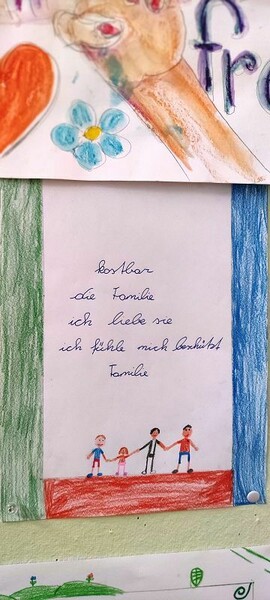 fr
kostbar
die Familie
ich liebe sie
ich fühle mich beschützt
Familie